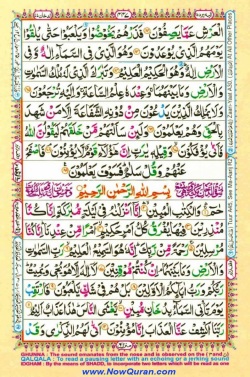 الْعَرْشِ عَمَّا يَصِفُوْنَ فَذَرْهُمْ يَخُوْضُوْا وَيَلْعَبُوْا حَتّٰى يُلٰقُوْا
يَوْمَهُمُ الَّذِيْ يُوْعَدُوْنَ وَهُوَ الَّذِيْ فِي السَّمَآءِ اِلٰهٌ وَّفِي
الْاَرْضِ اِلٰهٌ وَهُوَ الْحَكِيْمُ الْعَلِيْمُ وَتَبٰرَكَ الَّذِيْ لَهٗ مُلْكُ السَّمٰوٰتِ
وَالْاَرْضِ وَمَا بَيْنَهُمَا وَعِنْدَهٗ عِلْمُ السَّاعَةِ وَاِلَيْهِ تُرْجَعُوْنَ
وَلَا يَمْلِكُ الَّذِيْنَ يَدْعُوْنَ مِنْ دُوْنِهِ الشَّفَاعَةَ اِلَّا مَنْ شَهِدَ
بِالْحَقِّ وَهُمْ يَعْلَمُوْنَ وَلَئِنْ سَاَلْتَهُمْ مَّنْ خَلَقَهُمْ لَيَقُوْلُنَّ اللّٰهُ فَاَنّٰى
يُؤْفَكُوْنَ وَقِيْلِهٖ يٰرَبِّ اِنَّ هٰٓؤُلَآءِ قَوْمٌ لَّا يُؤْمِنُوْنَ فَاصْفَحْ
عَنْهُمْ وَقُلْ سَلٰمٌ فَسَوْفَ يَعْلَمُوْنَ
بِسْمِ اللّٰهِ الرَّحْمٰنِ الرَّحِيْمِ
حٰمٓ وَالْكِتٰبِ الْمُبِيْنِ اِنَّآ اَنْزَلْنٰهُ فِيْ لَيْلَةٍ مُّبٰرَكَةٍ اِنَّا كُنَّا
مُنْذِرِيْنَ فِيْهَا يُفْرَقُ كُلُّ اَمْرٍ حَكِيْمٍ اَمْرًا مِّنْ عِنْدِنَا اِنَّا كُنَّا
مُرْسِلِيْنَ رَحْمَةً مِّنْ رَّبِّكَ اِنَّهٗ هُوَ السَّمِيْعُ الْعَلِيْمُ رَبِّ السَّمٰوٰتِ
وَالْاَرْضِ وَمَا بَيْنَهُمَا اِنْ كُنْتُمْ مُّوْقِنِيْنَ لَآ اِلٰهَ اِلَّا هُوَ يُحْيٖ وَيُمِيْتُ
رَبُّكُمْ وَرَبُّ اٰبَآئِكُمُ الْاَوَّلِيْنَ بَلْ هُمْ فِيْ شَكٍّ يَّلْعَبُوْنَ فَارْتَقِبْ
يَوْمَ تَاْتِي السَّمَآءُ بِدُخَانٍ مُّبِيْنٍ يَّغْشَى النَّاسَ هٰذَا عَذَابٌ اَلِيْمٌ
رَبَّنَا اكْشِفْ عَنَّا الْعَذَابَ اِنَّا مُؤْمِنُوْنَ اَنّٰى لَهُمُ الذِّكْرٰى وَقَدْ
GHUNNA : The sound emanates from the nose and is observed on the (م and ن)
QALQALA : To read a pausing letter with an echoing or a jerking sound
IDGHAM : By the means of SHADD, to incorporate two letters which will be read as one
www.NowQuran.com